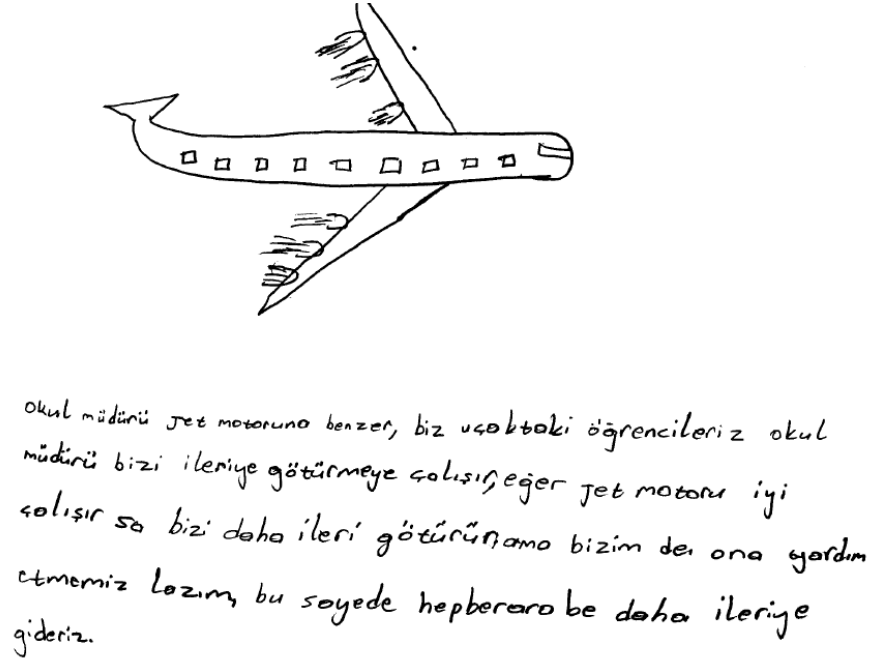 okul müdürü jet motoruna benzer, biz uçaktaki öğrencileriz okul
müdürü bizi ileriye götürmeye çalışır, eğer jet motoru iyi
çalışır sa bizi daha ileri götürür, ama bizim de ona yardım
etmemiz lazım, bu sayede hepberarabe daha ileriye
gideriz.